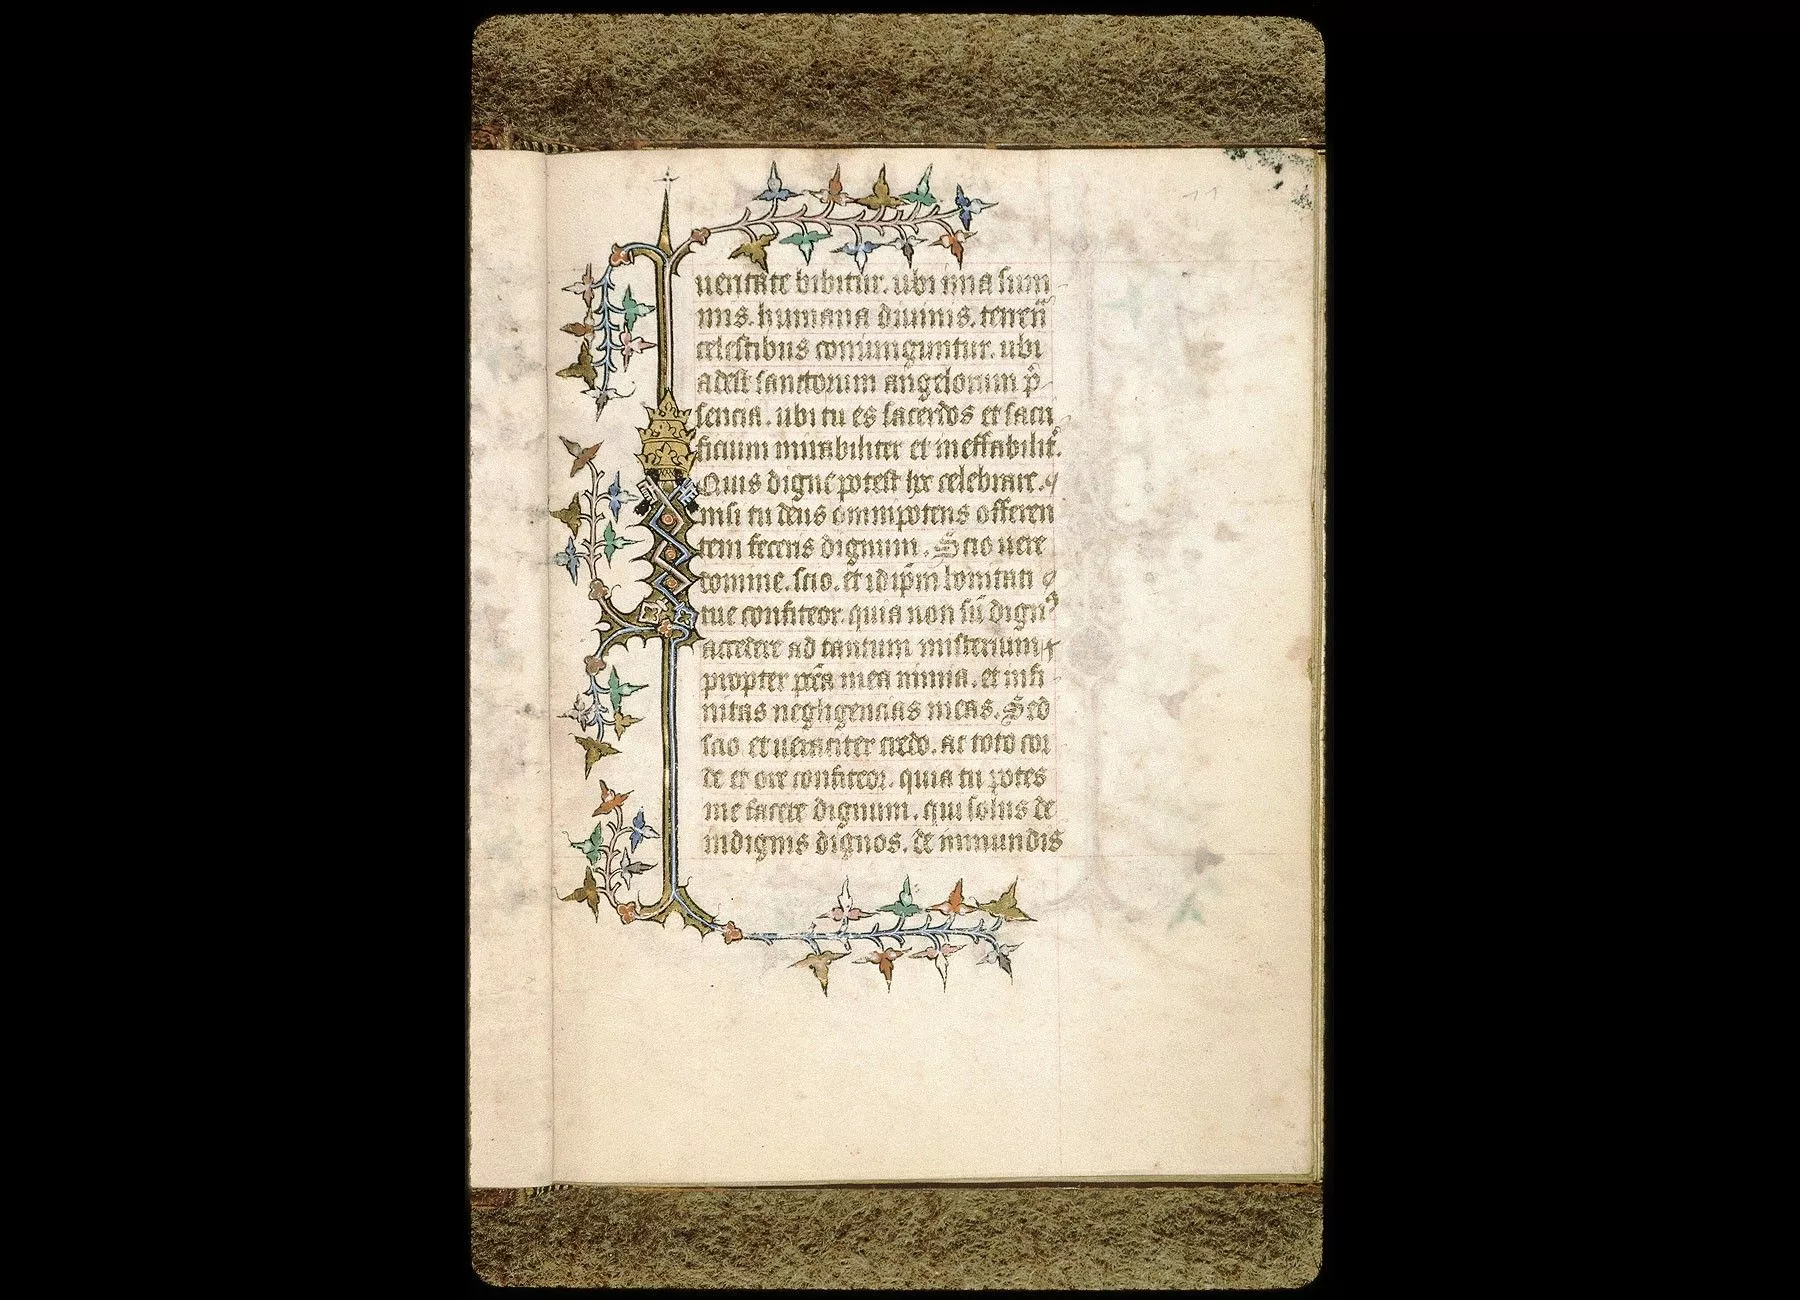 11
ueritate bibitur. ubi ima sum
mis. humana diuinis. terrena
celestibus coniunguntur. ubi
adest sanctorum angelorum p̄
sencia. ubi tu es sacerdos et sacri
ficium mirabiliter et ineffabilit̄.
Quis digne potest hec celebrare.
nisi tu deus omnipotens offeren
tem feceris dignum. Scio uere
domine. scio. et id ip̄m bonitati
tue confiteor. quia non sū dignꝰ
accedere ad tantum misterium
propter pccā mea nimia. et infi
nitas negligencias meas. Sed
scio et ueraciter credo. ac toto cor
de et ore confiteor. quia tu potes
me facere dignum. qui solus de
indignis dignos. de inmundis